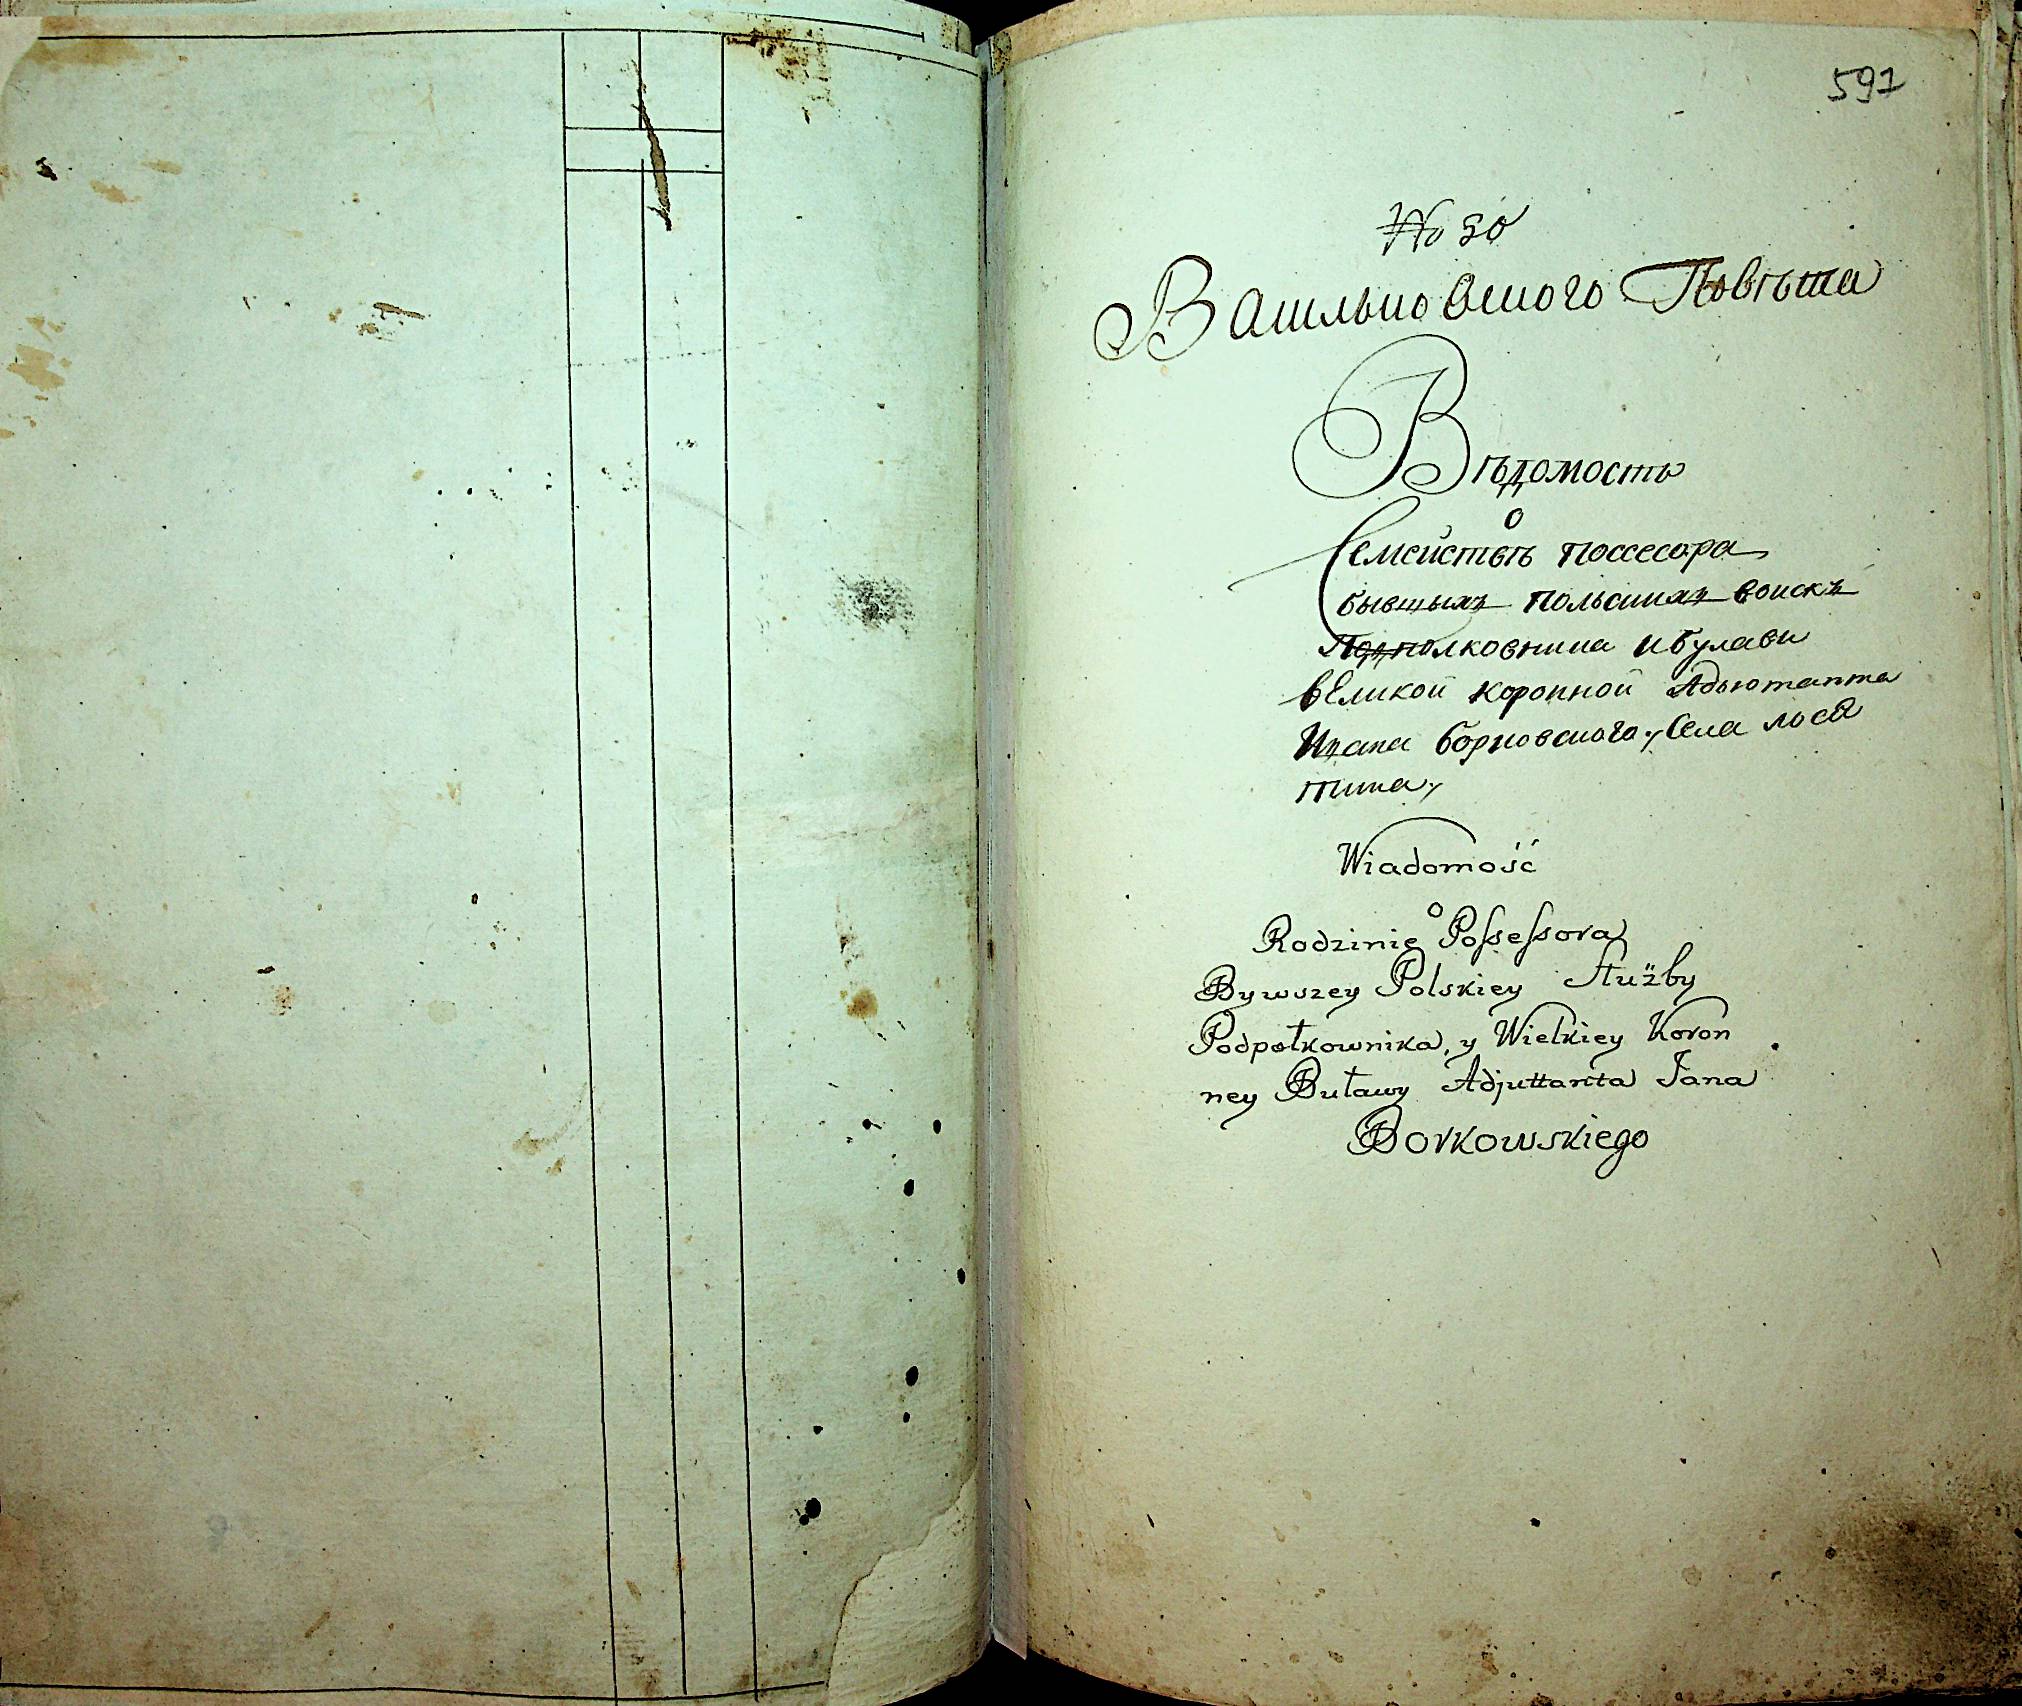 591
№ 30
Васильковского Повѣта
Вѣдомость
о
Семействѣ поссесора
бывшыхъ польскихъ воискъ
Подполковника и булави
великой коронной Адьютанта
Ивана борковского, Села лося
тина,
Wiadomość
o
Rodzinie Possessora
Bywszey Polskiey Służby
Podpołkownika, y Wielkiey Koron
ney Buławy Adjuttanta Jana
Borkowskiego